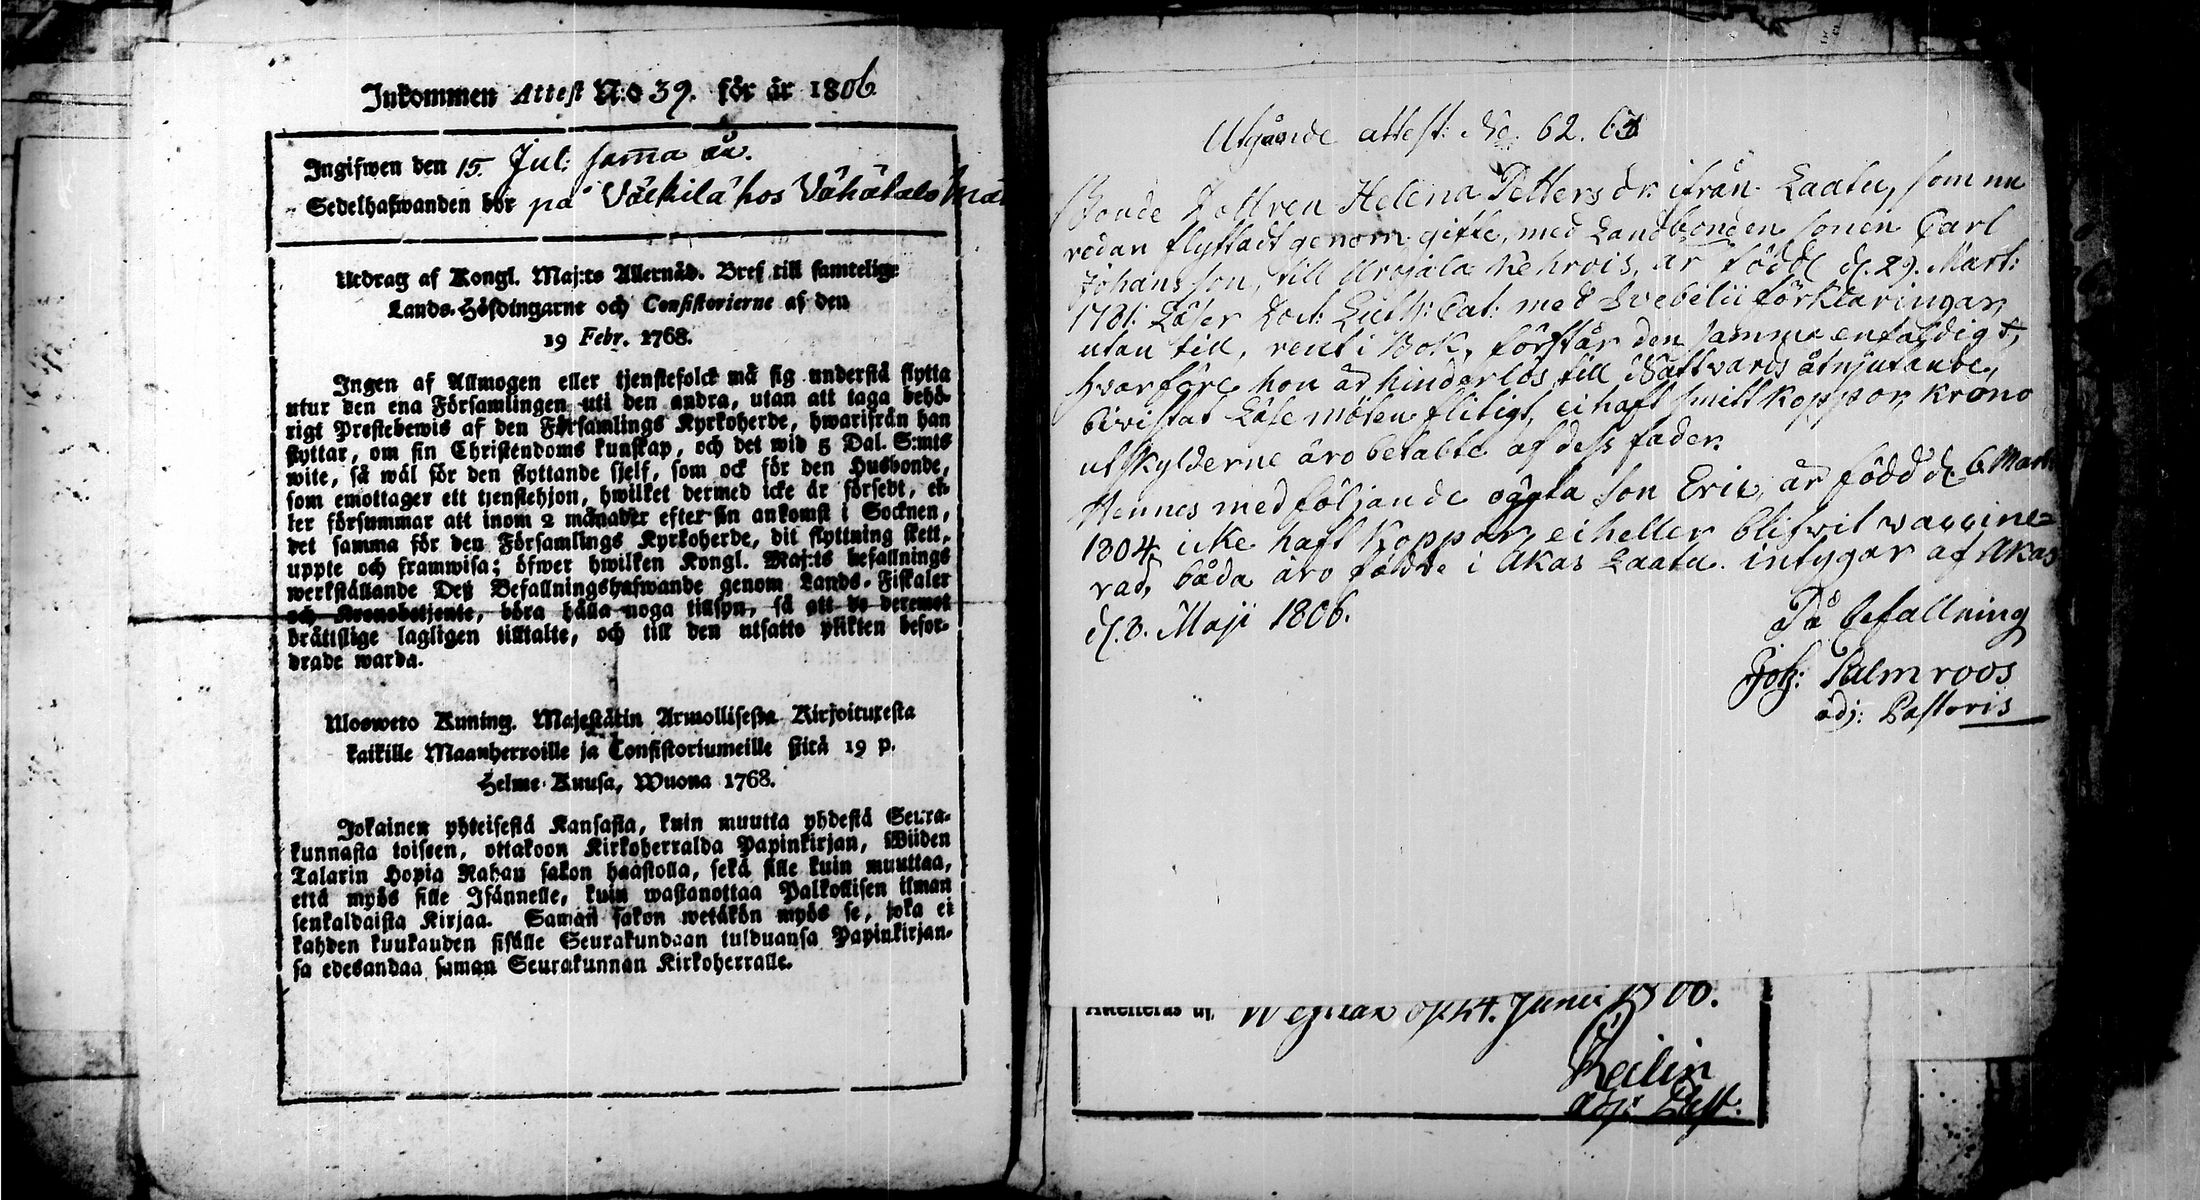 Inkommen Attest N:o 39. för år 1806.
Ingifwen den 15. Jul: samma år.
Sedelhafwanden bor på Väihilä hos Vähätalo
Utdrag af Kongl. Maj:ts Allernåd. Bref till samtelige
Lands-Höfdingarne och Consistorierne af den
19 Febr. 1768.
Ingen af Allmogen eller tjenstefolck må sig understå flytta
utur den ena Församlingen uti den andra, utan att taga behö-
rigt Prestebewis af den Församlings Kyrkoherde, hwarifrån han
flyttar, om sin Christendoms kunskap, och det wid 5 Dal. S:mts
wite, så wäl för den flyttande sjelf, som ock för den Husbonde,
som emottager ett tjenstehjon, hwilket dermed icke är försedt, el-
ler försummar att inom 2 månader efter sin ankomst i Socknen,
det samma för den Församlings Kyrkoherde, dit flyttning skett,
uppte och framwisa; öfwer hwilken Kongl. Maj:ts befallnings
werkställande Deß Befallningshafwande genom Lands-Fiskaler
och Kronobetjente, böra hålla noga tillsyn, så att de deremot
brättslige lagligen tilltalte, och till den utsatte plikten befor-
drade warda.
Ulosweto Kuning. Majestätin Armollisesta Kirjoituxesta
kaikille Maanherroille ja Consistoriumeille siitä 19 p.
Helme-Kuusa, Wuona 1768.
Jokainen yhteisestä Kansasta, kuin muutta yhdestä Seura-
kunnasta toiseen, ottakoon Kirkoherralda Papinkirjan, Wiiden
Talarin Hopia Rahan sakon haastolla, sekä sille kuin muuttaa,
että myös sille Isännelle, kuin wastanottaa Palkollisen ilman
senkaldaista Kirjaa. Saman sakon wetäkön myös se, joka ei
kahden kuukauden sisälle Seurakundaan tulduansa Papinkirjan-
sa edesandaa saman Seurakunnan Kirkoherralle.
Utgående attest: No. 62. 63
Bonde Dottren Helena Petters dr. ifrån Laatu, som nu
redan flyttadt genom gifte, med Landbonden sonen Carl
Johansson, till Urdiala Kehrois, är född d. 29. Mart:
1781. Läser Doct: Luth: Cat: med Svebelii förklaringar,
utan till, rent i Bok, förstår den samma enfaldigt,
hvarföre hon är hinderlös till Nattvards åtnjutande,
bivistat Läse möten flitigt, ei haft smitt koppor, krono
utskylderne äro betalte af dess fader.
Hennes medföljande oägta son Eric, är född d. 6 Mart:
1804, icke haft koppor, ei heller blifvit vaccine=
rad, båda äro födde i Akas Laatu. intygar af Akas
d. 3. Maji 1806.
På befallning
Joh: Palmroos
adj: Pastoris
Attesteras af 24. Junii 1806.
Heilin
adj: Past: